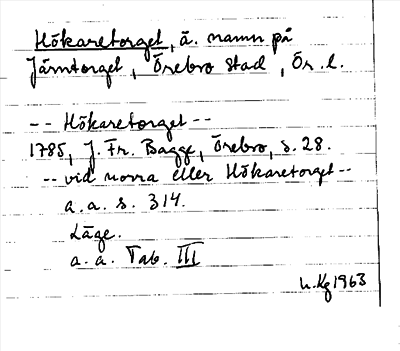 Hökaretorget, ä. namn på
Järntorget, Örebro stad, Ör. l.
-- Hökaretorget --
1785, J. Fr. Bagge, Örebro, s. 28.
-- vid norra eller Hökaretorget --
a. a. s. 314.
Läge.
a. a. Tab. III
h. Kg 1963